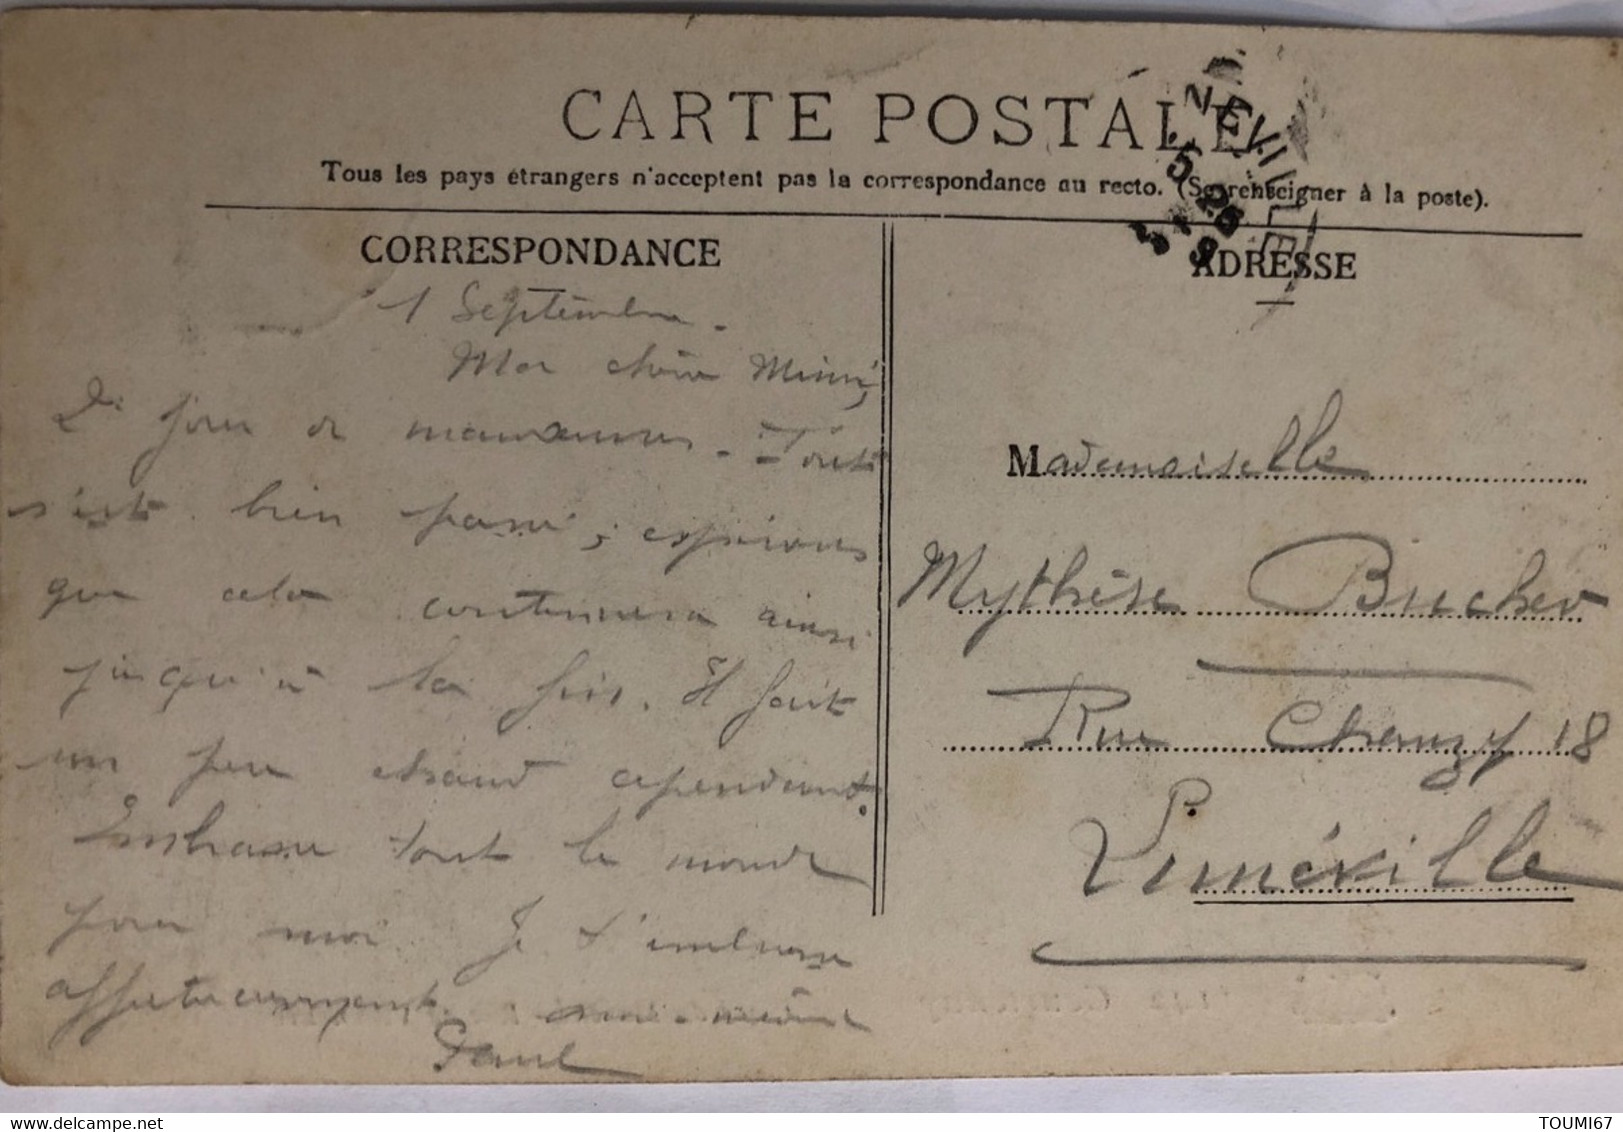 CARTE POSTALE
Tous les pays étrangers n'acceptent pas la correspondance au recto. (Se renseigner à la poste).
CORRESPONDANCE
1 Septembre.
Ma chère Mimi,
2e jour de manoeuvres. Tout
s'est bien passé; espérons
que cela continuera ainsi
jusqu'à la fin. Il fait
un peu chaud cependant.
Embrasse tout le monde
pour moi. Je t'embrasse
affectueusement
Paul
NEVILLE
ADRESSE
Mademoiselle
Mythèse Bucher
Rue Chanzy 18
Lunéville
TOUMI67